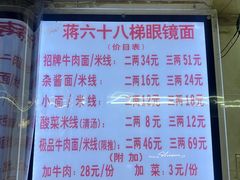 蒋六十八梯眼镜面
(价目表)
招牌牛肉面/米线: 二两34元 三两51元
杂酱面/米线: 二两16元 三两24元
小面/米线: 二两12元 三两18元
酸菜米线(清汤): 二两12元 三两18元
极品牛肉面/米线(限推): 二两46元 三两69元
(附 加)
加牛肉:28元/份 加菜:3元/份